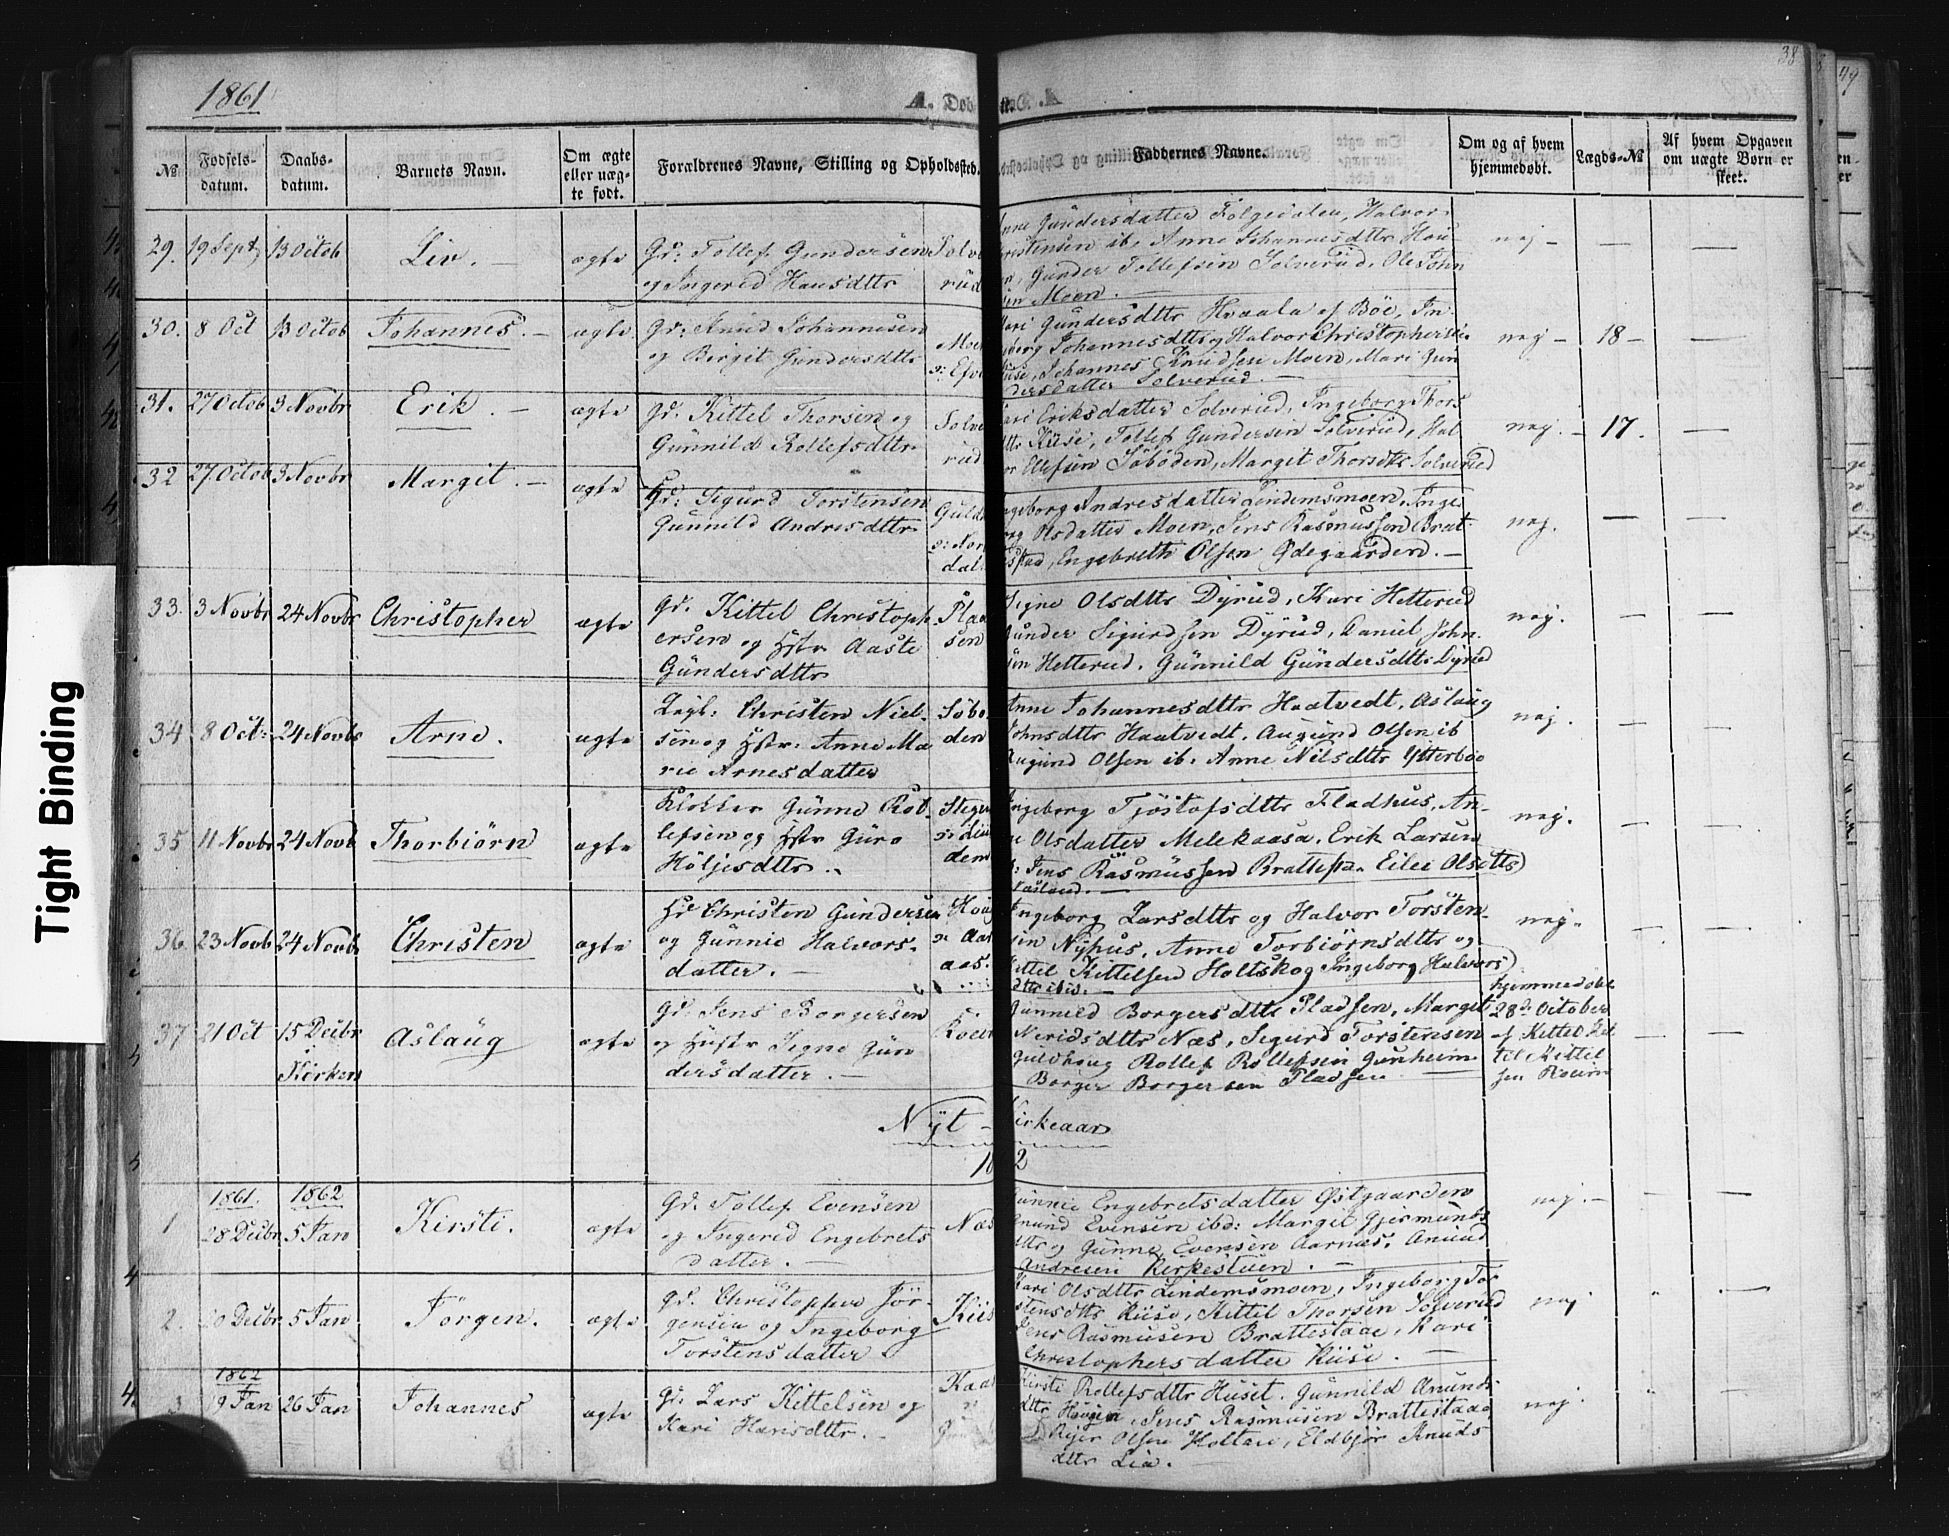 38
49
1861
A. Døb
Tight Binding
№
Fødsels-
datum.
Daabs-
datum.
Barnets Navn.
Om ægte
eller uæg-
te født.
Forældrenes Navne, Stilling og Opholdssted.
Faddernes Navne.
Om og af hvem
hjemmedøbt.
Lægds-№
Af hvem Opgaven
om uægte Børn er
skeet.
29. 19 Sept 13 Octob Liv. — ægte Gd: Tollef Gundersen Solve
og Ingerid Hansdttr rud
Gundersdatter Følgedalen, Halvor
ristensen ib. Anne Johannesdttr Hou-
Gunder Tollefsen Solverud, Ole John
sen Moen. —
nej — — —
30. 8 Oct 13 Octob Johannes. — ægte Gd: Knud Johannesen Moen
og Birgit Gundersdttr
Gundersdttr Hvaala af Böe, In-
berg Johannesdttr og Halvor Christophersen
Johannes Knudsen Moen, Mari Gun
dersdatter Solverud. —
nej — 18 — —
31. 27 Octob 3 Novbr Erik. — ægte Gd. Kittel Thorsen og Solve
Gunnild Rollefsdttr. rud
Eriksdatter Solverud, Ingeborg Thors
dttr Kiise, Tollef Gundersen Solverud, Hal
Ollefsen Söböden, Margit Thorsdttr Solverud
nej. — 17. —
32 27 Octob 3 Novbr Margit. — ægte Gd. Sigurd Torstensen Guld
Gunnild Andresdttr
dal
geborg Andresdatter Lindemsmoen, Inge
Olsdatter Moen, Jens Rasmussen Brat-
stad, Engebreth Olsen Ødegaarden. —
nej. — —
33. 3 Novbr 24 Novbr Christopher ægte Gd. Kittel Christoph Plad
ersen og Hstr Aaste sen
Gundersdttr
Signe Olsdttr Dyrud, Kari Hetterud
Gunder Sigurdsen Dyrud, Daniel John
sen Hetterud. Gunnild Gundersdttr Dyrud
nej. — —
34 8 Oct: 24 Novb Arne. ægte Christen Niel- Söbo
sen og Hstr. Anne Ma den
rie Arnesdatter
Anne Johannesdttr Haatvedt, Aslaug
Johnsdttr Haatvedt, Augund Olsen ib
Augund Olsen ib. Anne Nilsdttr Ytterböe
nej. — —
35 11 Novbr 24 Novb Thorbiörn ægte Klokker Gunne Rol-
lefsen og Hstr Guro
Höljesdttr. dem
Ingeborg Tjöstofsdttr Fladhus, An-
Olsdatter Melekaasa. Erik Larsen
Jens Rasmussen Brattesta. Eilei Olsdttr
nej. — —
36. 23 Novb 24 Novb Christen ægte Gd Christen Gundersen
og Gunnie Halvors- Aar
datter. — aas.
Ingeborg Larsdttr og Halvor Torsten
sen Nyhus, Anne Torbiörnsdttr og
Kittel Kittelsen Holtskog Ingeborg Halvors
dttr ibid. —
nej. — —
37 21 Oct 15 Decbr Aslaug ægte Gd. Jens Borgersen
i Kirken og Hustr Signe Gun
dersdatter. —
Gunnild Borgersdttr Pladsen, Margit
Neridsdttr Næs, Sigurd Torstensen
Guldhaug Rollef Rollefsen Gunheim
Borger Borgersen Pladsen
hjemmedöbt
28de October
af Kittel Kit
til Kittel
sen
— —
Nyt — Kirkeaar
1862
1861. 1862
1 28 Decbr 5 Jan Kirsti. ægte Gd. Tollef Evensen Næs
og Ingerid Engebrets
datter. —
Gunnie Engebretsdatter Østgaarden
Knud Evensen ibd: Margit Gjermunds
dttr og Gunne Evensen Aarnæs. Anund
Andresen Kirkestuen. —
nej. — — —
2. 5 Jan Jörgen. ægte Gd. Christopher Jör- Kiis
gensen og Ingeborg
Torstensdatter
Kari Olsdttr Lindemsmoen, Ingeborg Tor
stensdttr Kiise, Kittel Thorsen Solverud
Jens Rasmusen Brattestaae, Kari
Christophersdatter Kiise. —
nej " —
1862
3 19 Jan 26 Jan Johannes ægte Gd. Lars Kittelsen og Kaas
Kari Hansdttr. —
Kirsti Rollefsdttr Huset. Gunnild Anunds
dttr Haugen, Jens Rasmusen Brattestaae
Olsen Holtan, Eldbjør Knuds
dttr Lia. —
nej. " —